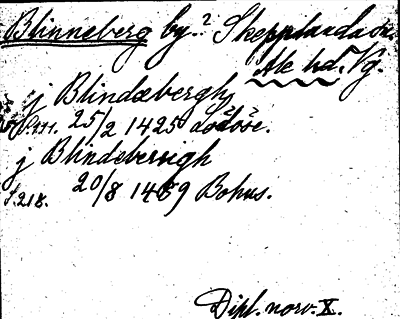 Blinneberg by.? Skepplanda sn.
Ale hd. Vg.
j Blindæberghj
s. 177. 25/2 1425 Lödöse.
j Blindebersigh
s. 218. 20/8 1469 Bohus.
Dipl. norv. X.